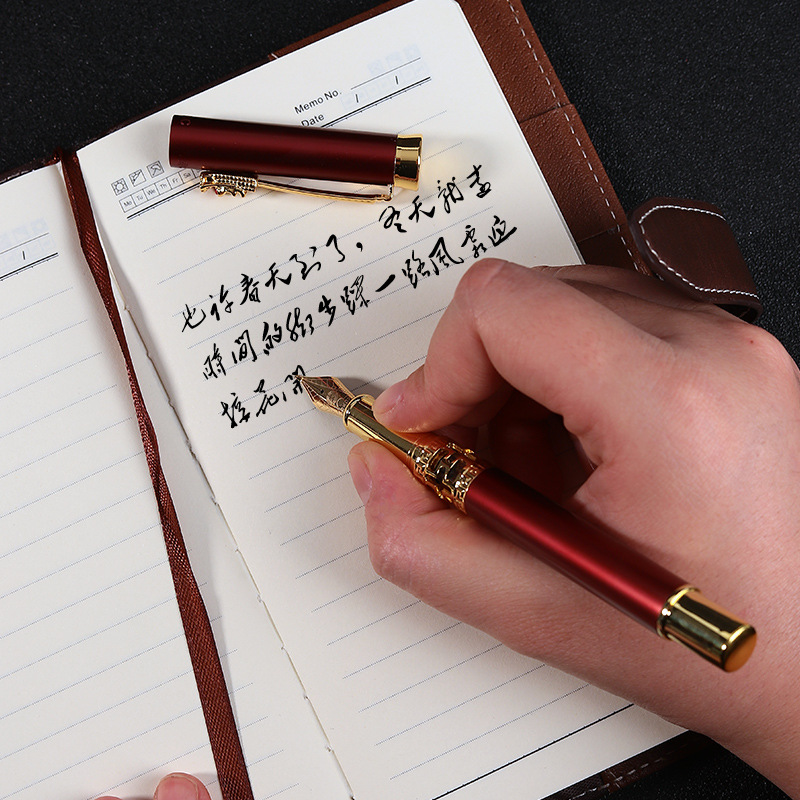 Memo No.
Date / /
Mo Tu We Th Fr Sa
也许春天到了，冬天就去
時間的街步踩一路风景迎
接花開